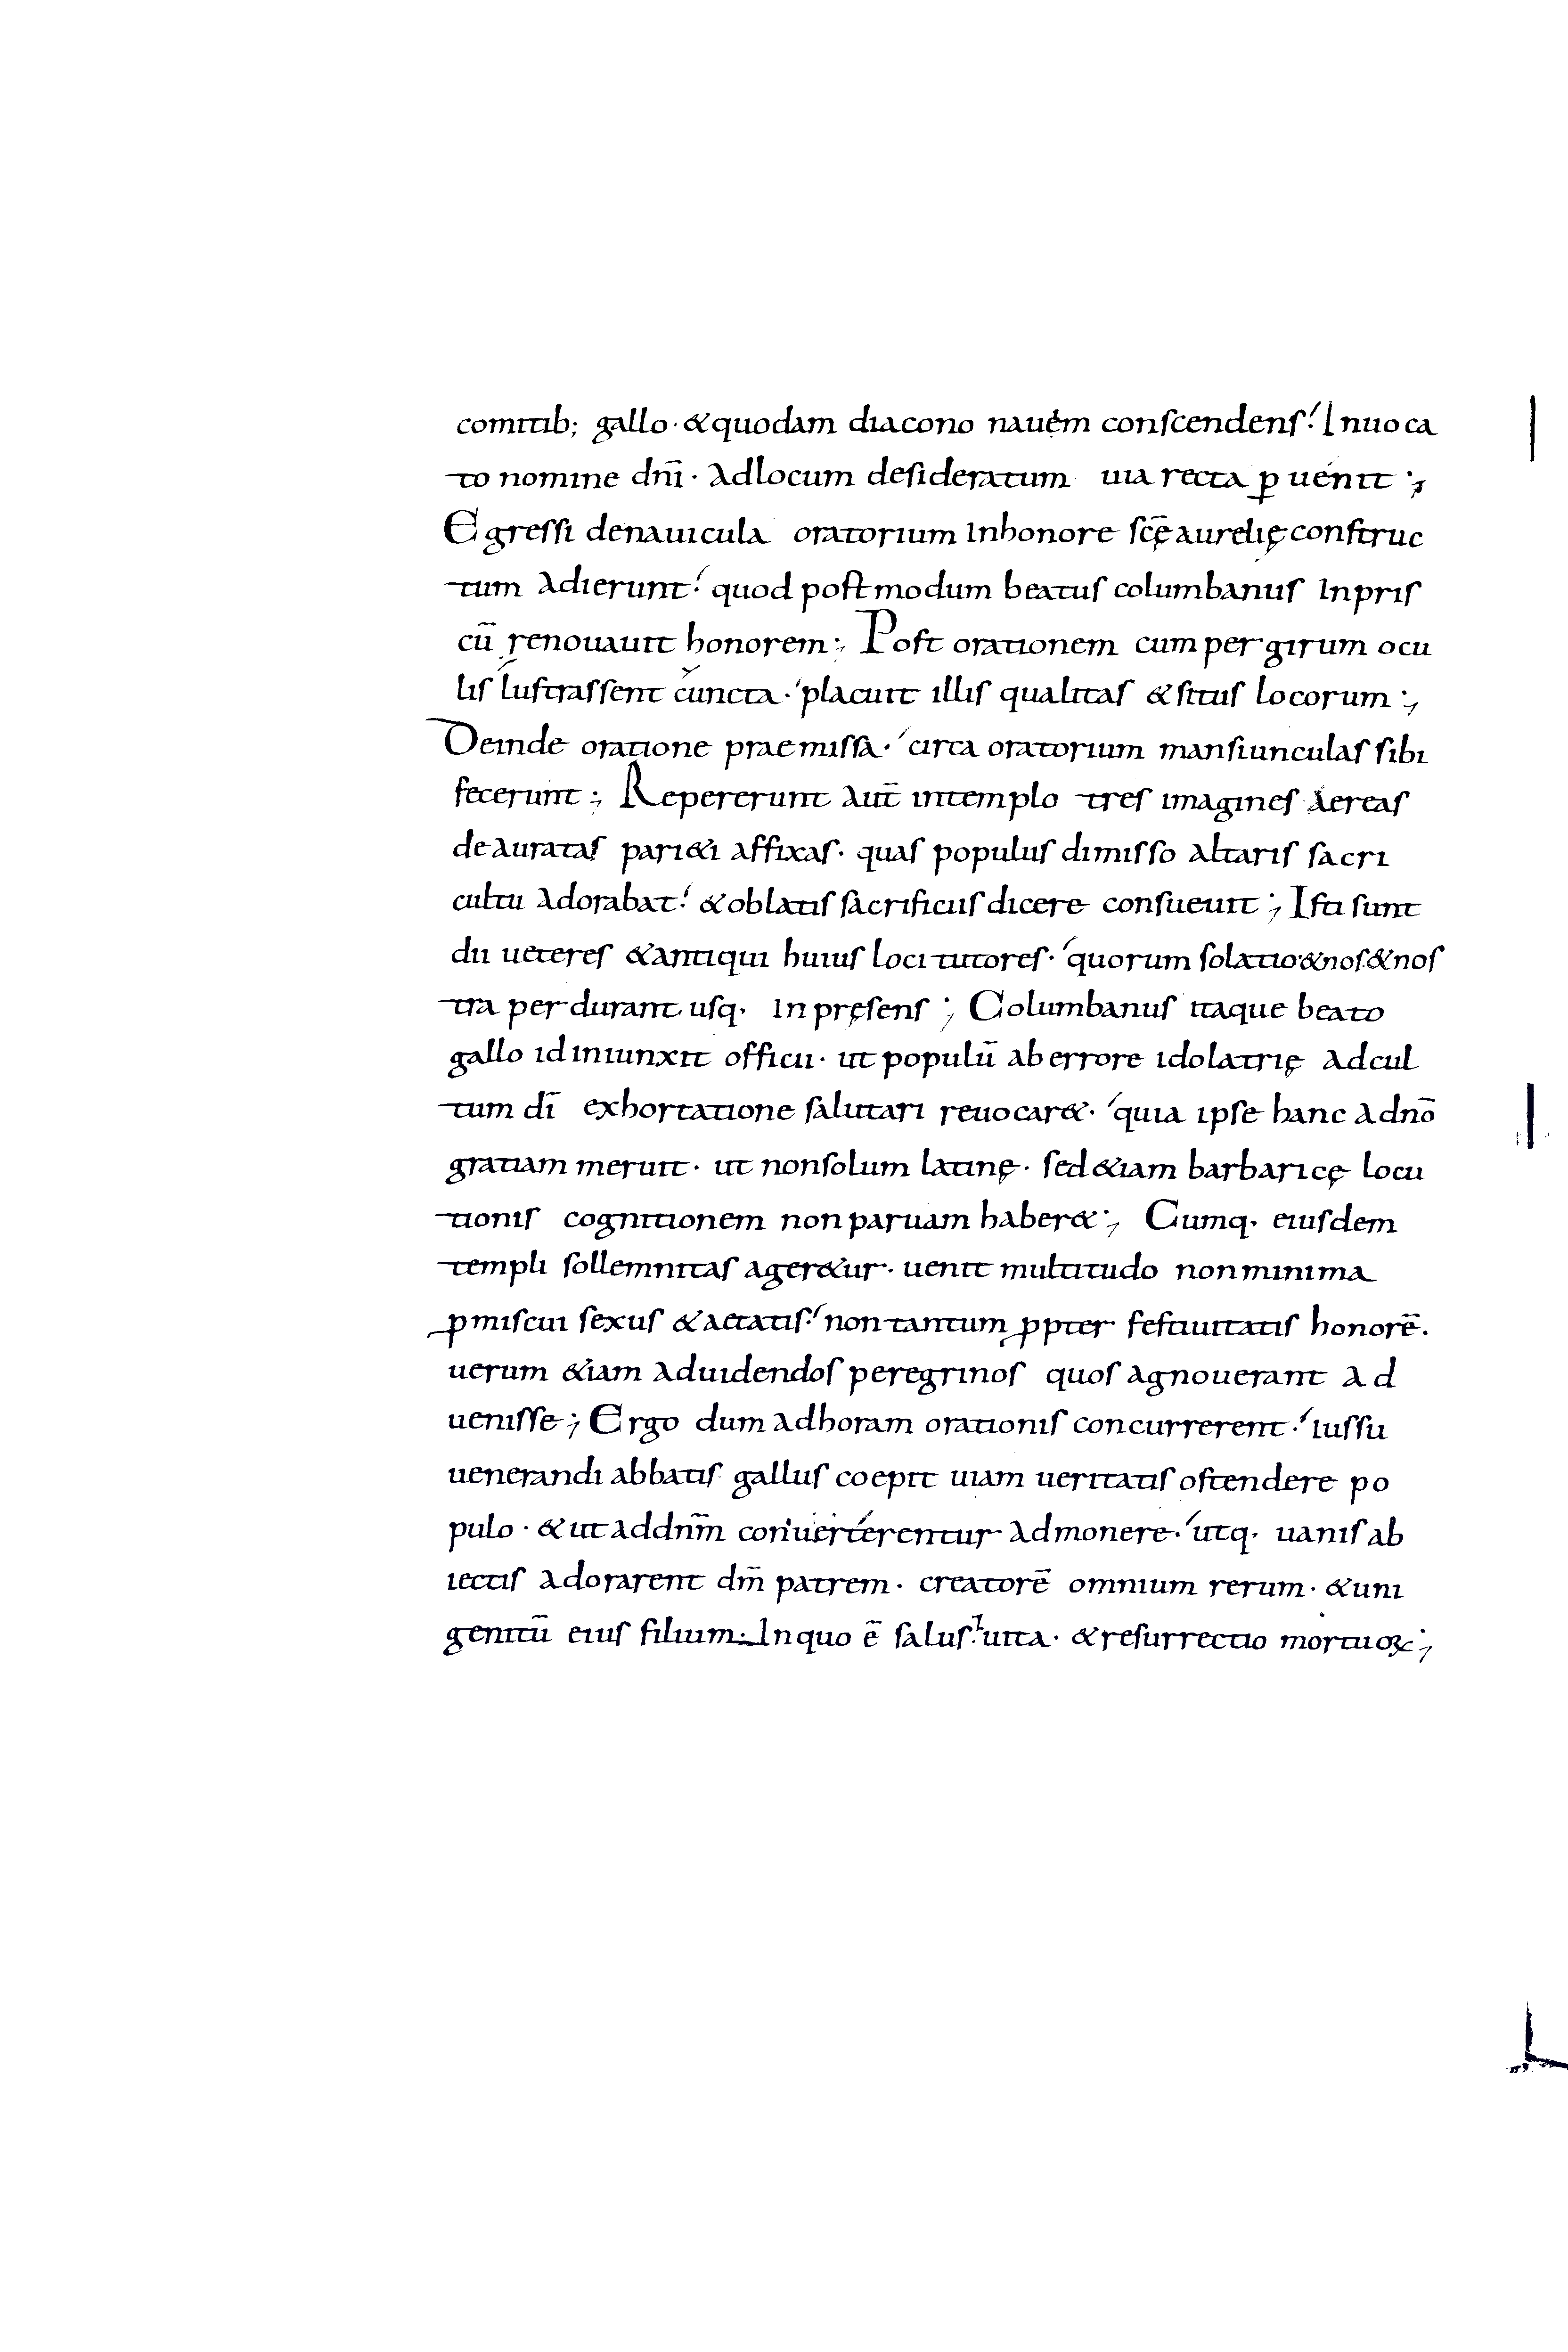 comitib; gallo · &quodam diacono nauem conscendens! Inuoca
to nomine dnī · Adlocum desideratum uia recta ꝑuenit ;
Egressi denauicula oratorium Inhonore scę̄ aurelię construc
tum adierunt! quod postmodum beatus columbanus Inpris
cū renouauit honorem ; Post orationem cum per girum ocu
lis lustrassent cuncta · placuit illis qualitas & situs locorum ;
Deinde oratione praemissa · circa oratorium mansiunculas sibi
fecerunt ; Repererunt aut̄ intemplo tres imagines aereas
deauratas pari&i affixas · quas populus dimisso altaris sacri
cultu adorabat! &oblatis sacrificiis dicere consueuit ; Isti sunt
dii ueteres &antiqui huius loci tutores · quorum solatio·&nos·&nos
tra perdurant usq· In pręsens ; Columbanus itaque beato
gallo id iniunxit officii · ut populū ab errore idolatrię ad cul
tum dī exhortatione salutari reuocar& · quia ipse hanc adnō
gratiam meruit · ut nonsolum latinę · sed &iam barbaricę locu
tionis cognitionem non paruam haber& ; Cumq· eiusdem
templi sollemnitas ager&ur · uenit multitudo non minima
ꝓmiscui sexus &aetatis! non tantum ꝓpter festiuitatis honorē.
uerum &iam aduidendos peregrinos quos agnouerant ad
uenisse ; Ergo dum adhoram orationis concurrerent! iussu
uenerandi abbatis gallus coepit uiam ueritatis ostendere po
pulo · &ut addnm̄ conuerterentur admonere · utq· uanis ab
iectis adorarent dm̄ patrem · creatorē omnium rerum · &uni
genitū eius filium: Inquo ē salus! uita · &resurrectio mortuoꝝ ;